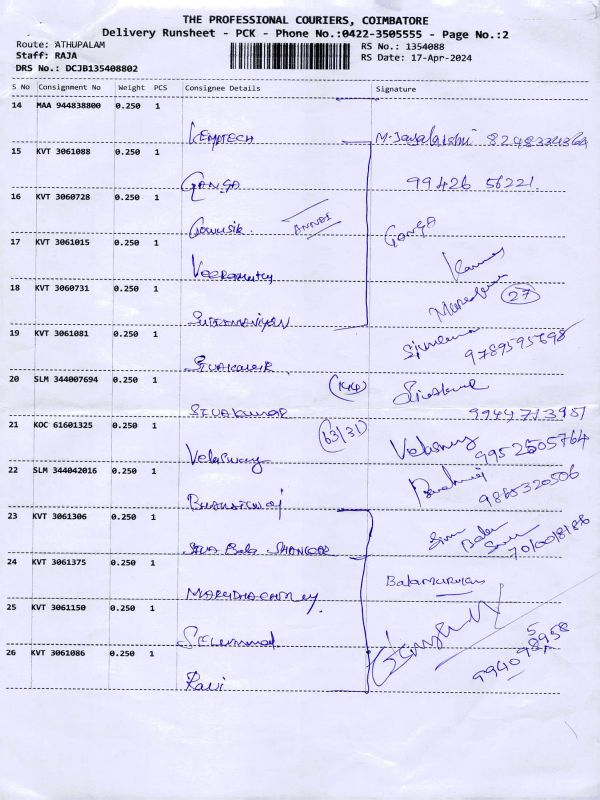 THE PROFESSIONAL COURIERS, COIMBATORE
Delivery Runsheet - PCK - Phone No.:0422-3505555 - Page No.:2
Route: ATHUPALAM
Staff: RAJA
DRS No.: DCJB135408802
RS No.: 1354088
RS Date: 17-Apr-2024
S No Consignment No Weight PCS Consignee Details Signature
14 MAA 944838800 0.250 1
KEMPTECH
15 KVT 3061088 0.250 1
GANGA 99426 56221
16 KVT 3060728 0.250 1
Gowusik. ANNAI GANGA
17 KVT 3061015 0.250 1
Veeramuthy
18 KVT 3060731 0.250 1 27
19 KVT 3061081 0.250 1
9789595698
20 SLM 344007694 0.250 1 144
SIVAKUMAR 9944713951
21 KOC 61601325 0.250 1 63/31
Velaswamy Velaswamy 9952505764
22 SLM 344042016 0.250 1
BHARATHWAJ 9865320506
23 KVT 3061306 0.250 1
SIVA Bala SHANKAR
24 KVT 3061375 0.250 1
Balamurugan
25 KVT 3061150 0.250 1
26 KVT 3061086 0.250 1
Ravi